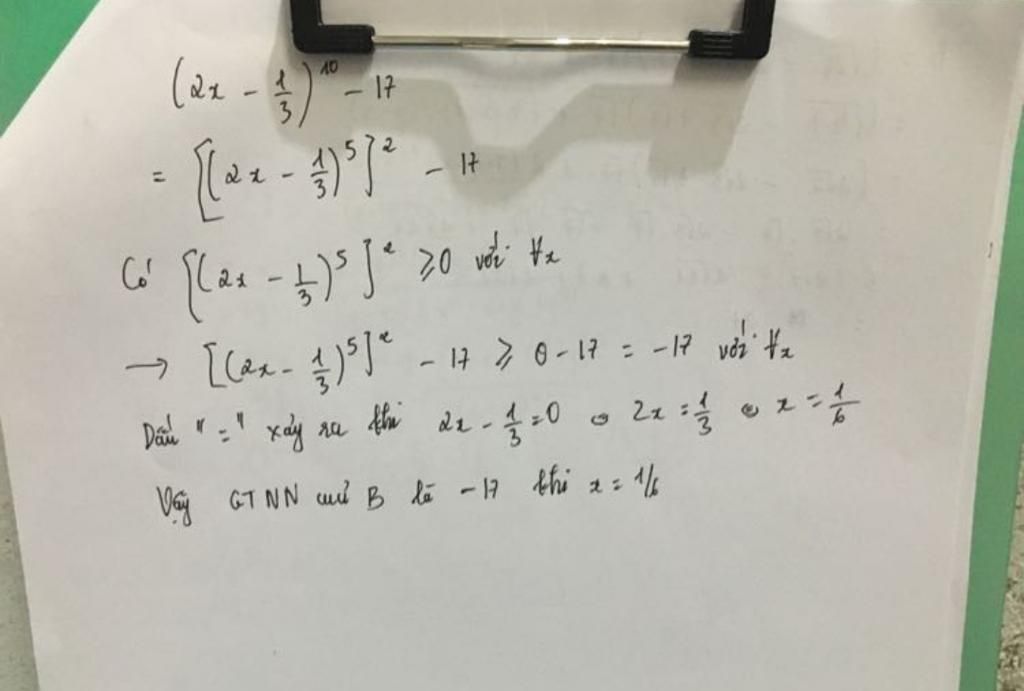 (2x - 1/3)^10 - 17
= [(2x - 1/3)^5]^2 - 17
Có [(2x - 1/3)^5]^2 ⩾ 0 với ∀x
→ [(2x - 1/3)^5]^2 - 17 ⩾ 0 - 17 = -17 với ∀x
Dấu "=" xảy ra khi 2x - 1/3 = 0 ⇔ 2x = 1/3 ⇔ x = 1/6
Vậy GTNN của B là -17 khi x = 1/6